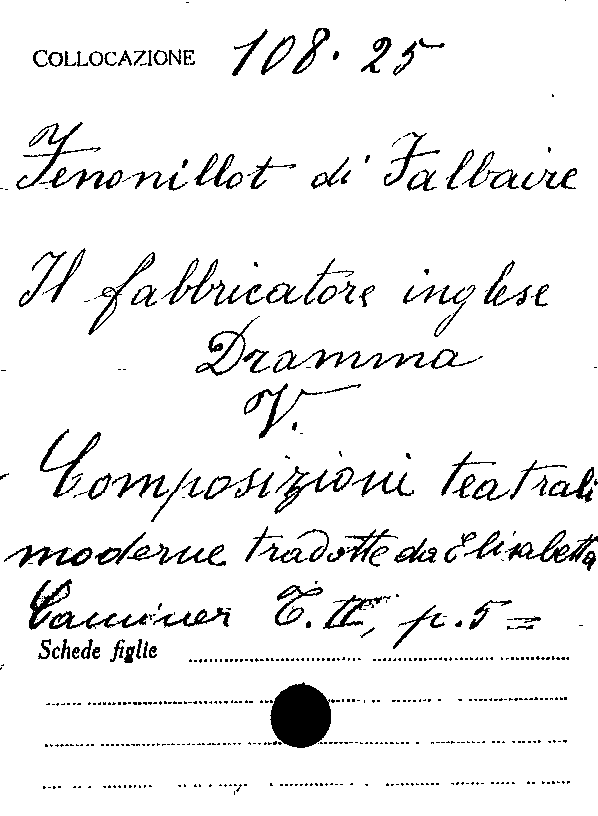 COLLOCAZIONE 108. 25
Fenonillot di Falbaire
Il fabbricatore inglese
Dramma
V.
Composizioni teatrali
moderne tradotte da Elisabetta
Caminer T. II, p. 5 =
Schede figlie